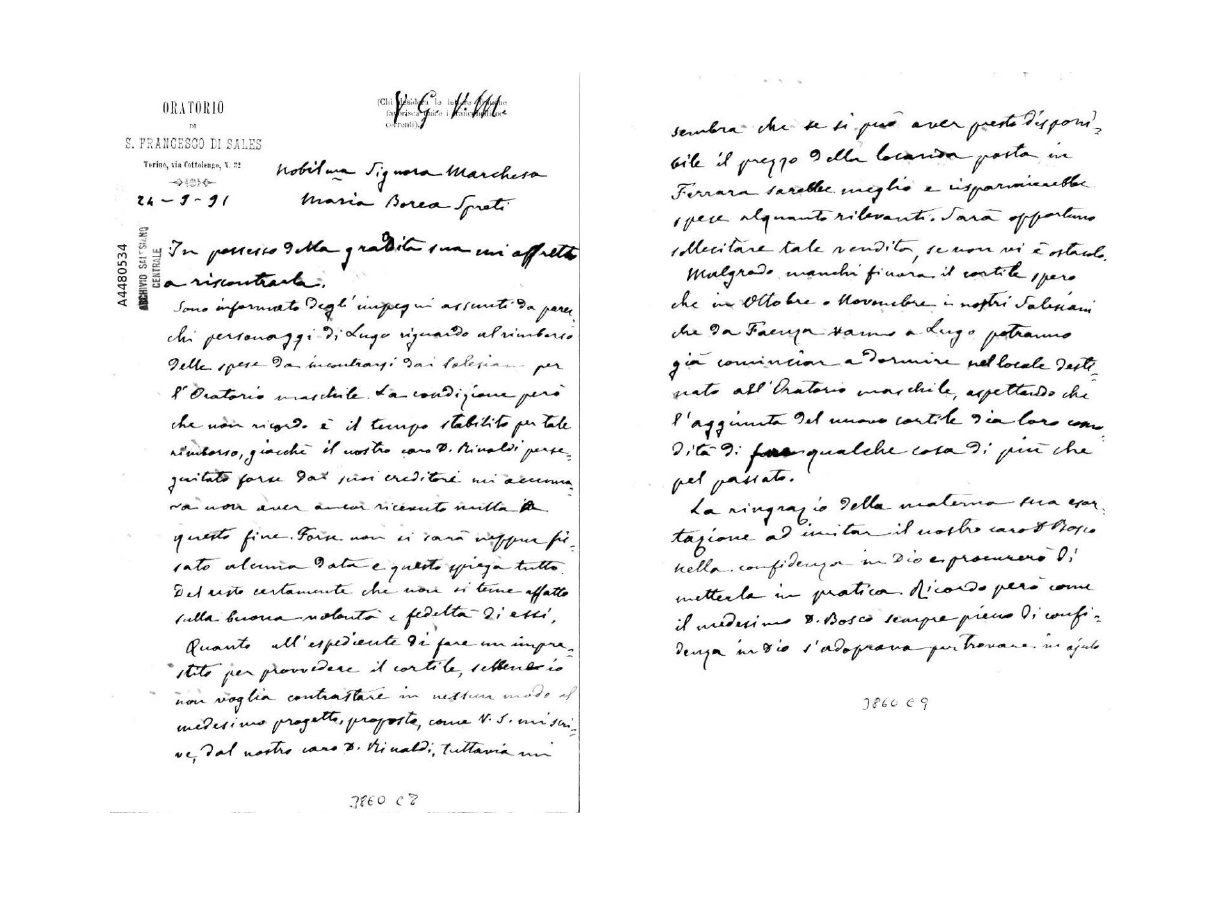 ORATORIO
DI
S. FRANCESCO DI SALES
Torino, via Cottolengo, N. 32
24-9-91
V. G. V. M.
Nobil.ma Signora Marchesa
Maria Borea Spreti
A4480534
ARCHIVIO SALESIANO
CENTRALE
In possesso della gradita sua mi affretto
a riscontrarla.
Sono informato degl'impegni assunti da parec-
chi personaggi di Lugo riguardo al rimborso
delle spese da incontrarsi dai Salesiani per
l'Oratorio maschile. La condizione però
che non ricordo è il tempo stabilito per tale
rimborso, giacchè il nostro caro D. Rinaldi perse-
guitato forse dai suoi creditori mi accenna-
va non aver ancor ricevuto nulla a
questo fine. Forse non si sarà neppur fis-
sato alcuna data e questo spiega tutto.
Del resto certamente che non si teme affatto
sulla buona volontà e fedeltà di essi,
Quanto all'espediente di fare un impre-
stito per provvedere il cortile, sebbene io
non voglia contrastare in nessun modo al
medesimo progetto, proposto, come V. S. mi scri-
ve, dal nostro caro D. Rinaldi, tuttavia mi
3860 C 8
sembra che se si può aver presto disponi-
bile il prezzo della locanda posta in
Ferrara sarebbe meglio e risparmierebbe
spese alquanto rilevanti. Sarà opportuno
sollecitare tale vendita, se non vi è ostacolo.
Malgrado manchi finora il cortile spero
che in Ottobre o Novembre i nostri Salesiani
che da Faenza vanno a Lugo potranno
già cominciar a dormire nel locale desti-
nato all'Oratorio maschile, aspettando che
l'aggiunta del nuovo cortile dia loro como-
dità di qualche cosa di più che
pel passato.
La ringrazio della materna sua esor-
tazione ad imitar il nostro caro D. Bosco
nella confidenza in Dio e procurerò di
metterla in pratica. Ricordo però come
il medesimo D. Bosco sempre pieno di confi-
denza in Dio s'adoprava per trovare in ajuto
3860 C 9